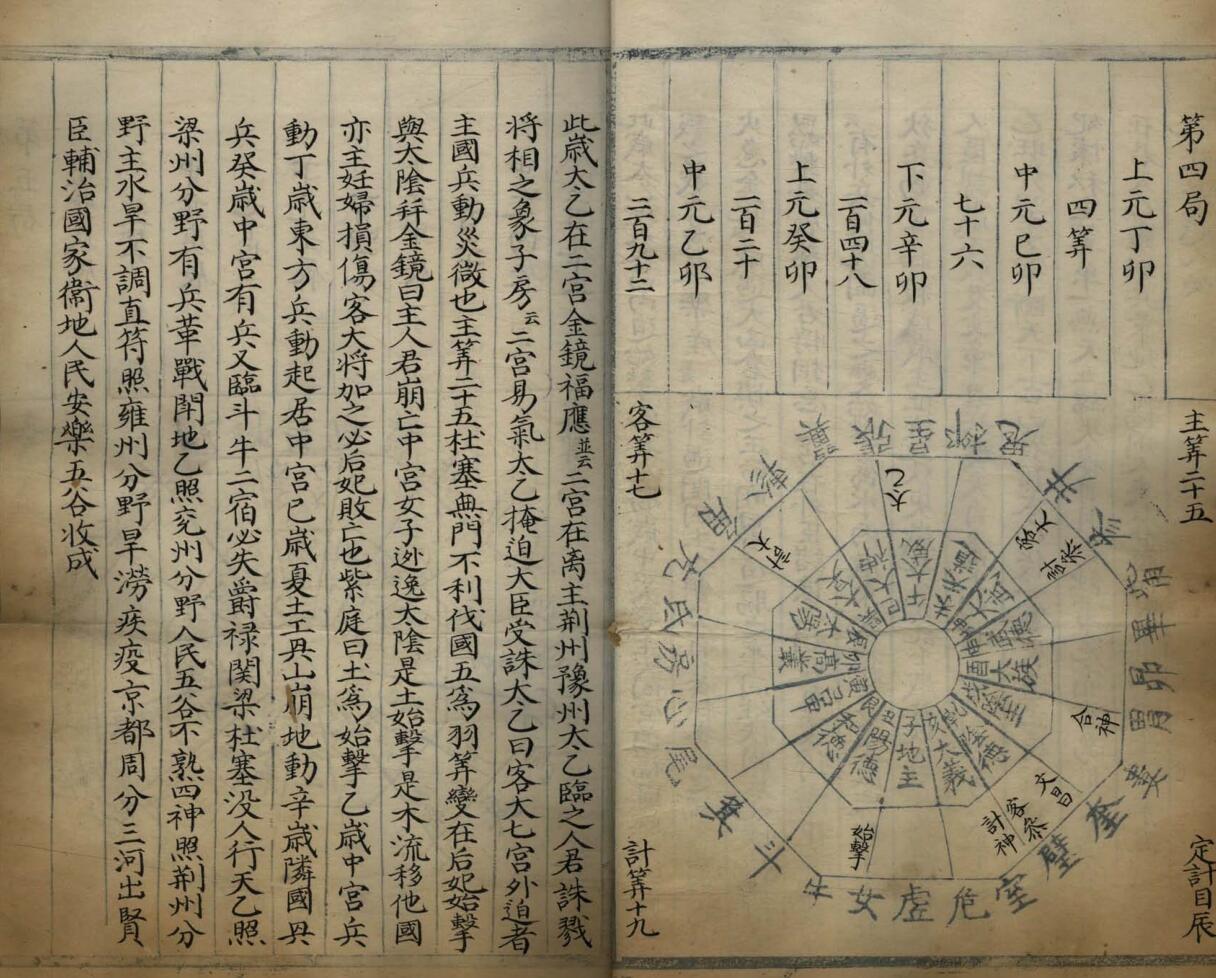 第四局
上元丁卯
四筭
中元己卯
七十六
下元辛卯
一百四十八
上元癸卯
二百二十
中元乙卯
二百九十二
主筭二十五
定計目辰
客筭十七
計筭十九
翼張星柳鬼
井參
觜畢昴胃
婁奎壁
室危虛女牛
斗箕
尾心房氐亢
角軫
太乙
客大
客參
主大
合神
文昌
客參
計神
始擊
巳大神
午大威
未天道
申武德
酉大族
戌陰主
乾陰德
亥大義
子地主
丑陽德
艮和德
寅呂申
卯高叢
辰太陽
此歲太乙在二宮金鏡福應並云二宮在离主荊州豫州太乙臨之人君誅戮
將相之象子房云二宮易氣太乙掩迫大臣受誅太乙曰客大七宮外迫者
主國兵動災微也主筭二十五杜塞無門不利伐國五爲羽筭變在后妃始擊
與太陰幷金鏡曰主人君崩亡中宮女子逃逸太陰是土始擊是木流移他國
亦主妊婦損傷客大將加之必后妃敗亡也紫庭曰土爲始擊乙歲中宮兵
動丁歲東方兵動起居中宮己歲夏土工興山崩地動辛歲隣國興
兵癸歲中宮有兵又臨斗牛二宿必失爵祿関梁杜塞没人行天乙照
梁州分野有兵革戰鬪地乙照兖州分野人民五谷不熟四神照荊州分
野主水旱不調直符照雍州分野旱澇疾疫京都周分三河出賢
臣輔治國家衛地人民安樂五谷收成